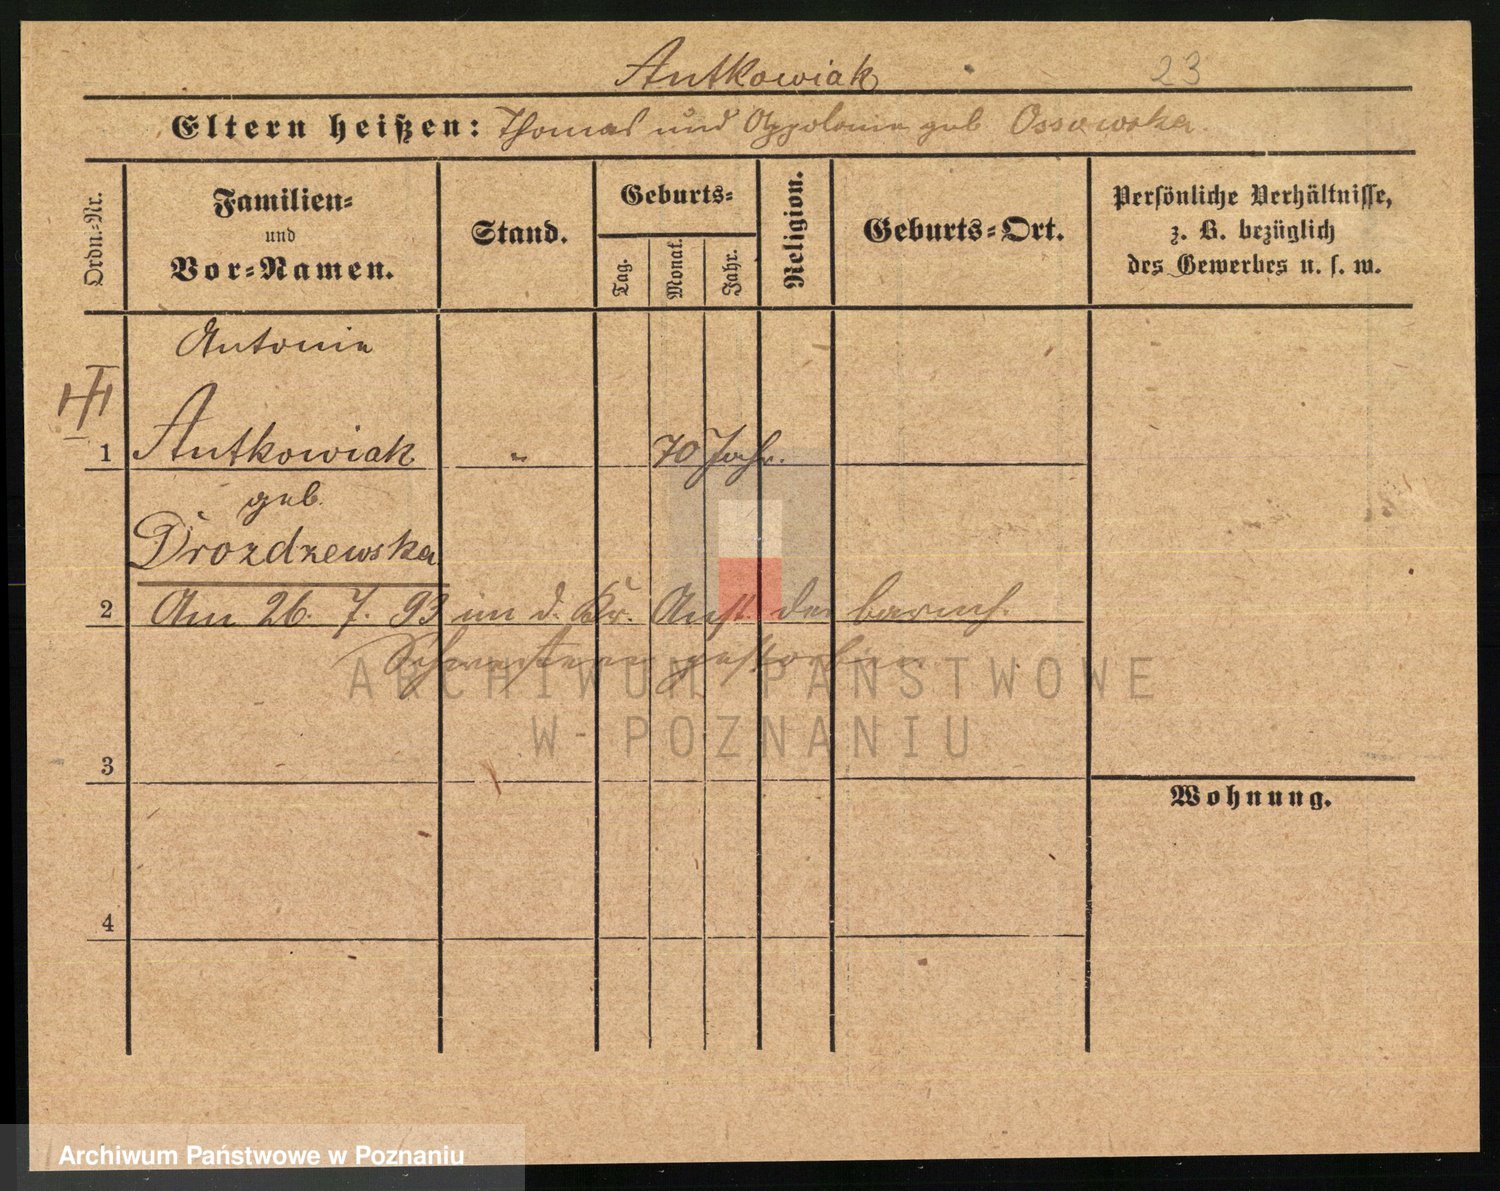 Antkowiak 23
Eltern heißen: Thomas und Appolonia geb Ossowska
Ordn.-Nr.
Familien-
und
Vor-Namen.
Stand.
Geburts-
Tag.
Monat.
Jahr.
Religion.
Geburts-Ort.
Persönliche Verhältnisse,
z. B. bezüglich
des Gewerbes u. s. w.
Antonie
1 Antkowiak " 70 Jahr.
geb.
Drozdzewska
2 Am 26. 7. 93 im d. Kr. Anst. der barmh.
Schwestern gestorben
ARCHIWUM PAŃSTWOWE
W POZNANIU
3
Wohnung.
4
Archiwum Państwowe w Poznaniu